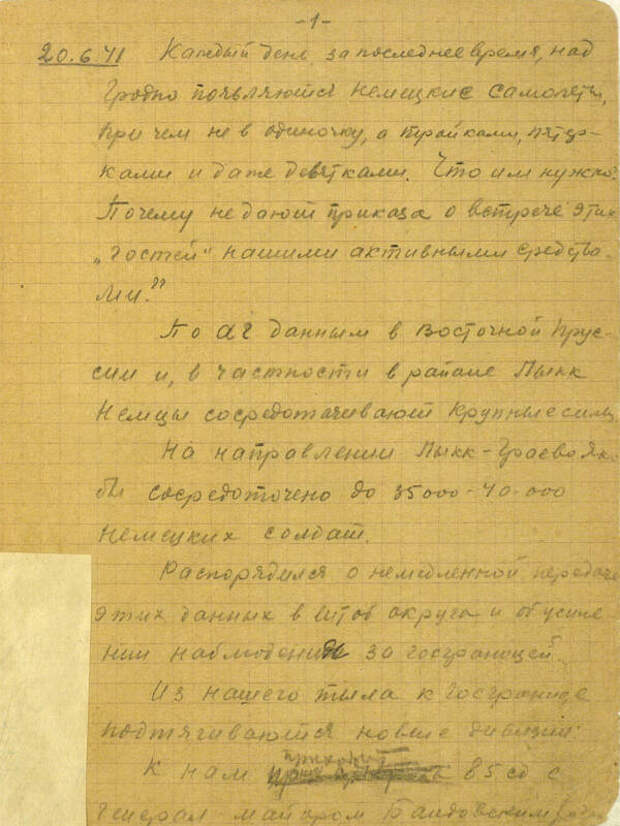 -1-
20.6.41 Каждый день за последнее время, над
Гродно появляются немецкие самолеты,
при чем не в одиночку, а тройками, пятер-
ками и даже девятками. Что им нужно?
Почему не дают приказа о встрече этих
„гостей" нашими активными средства-
ми?"
По аг данным в Восточной Прус-
сии и, в частности в районе Лыкк
немцы сосредотачивают крупные силы.
На направлении Лыкк-Граево як-
бы сосредоточено до 35000-40.000
немецких солдат.
Распорядился о немедленной передаче
этих данных в штаб округа и об усиле-
нии наблюдения за госграницей.
Из нашего тыла к госгранице
подтягиваются новые дивизии:
К нам приходит 85 сд с
генерал майором Бандовским